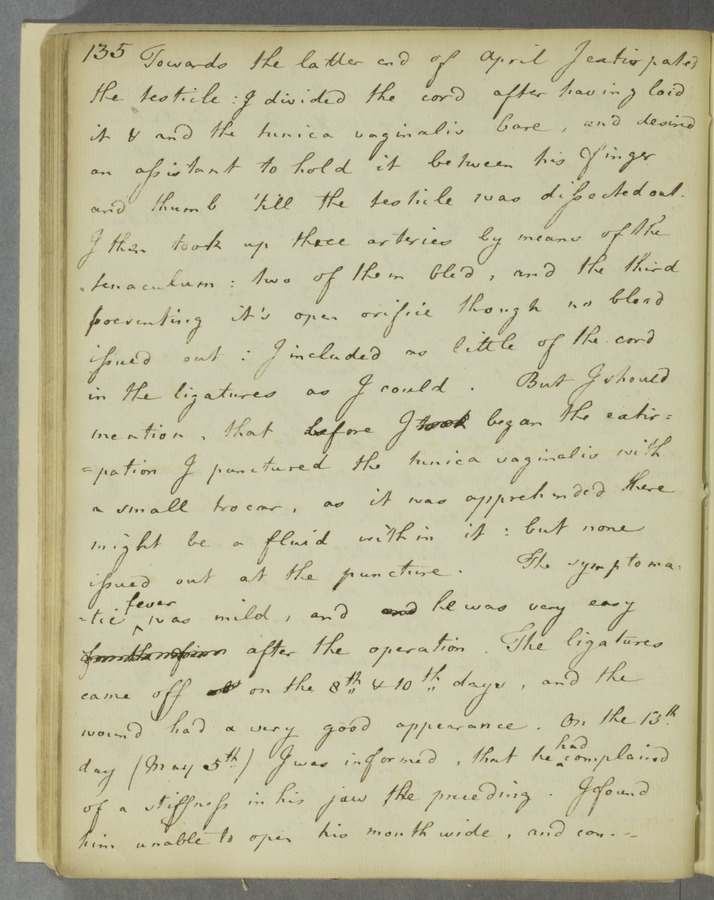 135 Towards the latter end of April I extirpated
the testicle: I divided the cord after having laid
it & and the tunica vaginalis bare, and desired
an assistant to hold it between his finger
and thumb 'till the testicle was dissected out.
I then took up three arteries by means of the
tenaculum: two of them bled, and the third
presenting it's open orifice though no blood
issued out: I included as little of the cord
in the ligatures as I could. But I should
mention, that before I took began the extir=
=pation I punctured the tunica vaginalis with
a small trocar, as it was apprehended there
might be a fluid within it: but none
issued out at the puncture. The symptoma-
-tic fever was mild, and and he was very easy
after the operation. The ligatures
came off on the 8th & 10th days, and the
wound had a very good appearance. On the 13th
day (May 5th) I was informed, that he had complained
of a stiffness in his jaw the preceding. I found
him unable to open his mouth wide, and con--